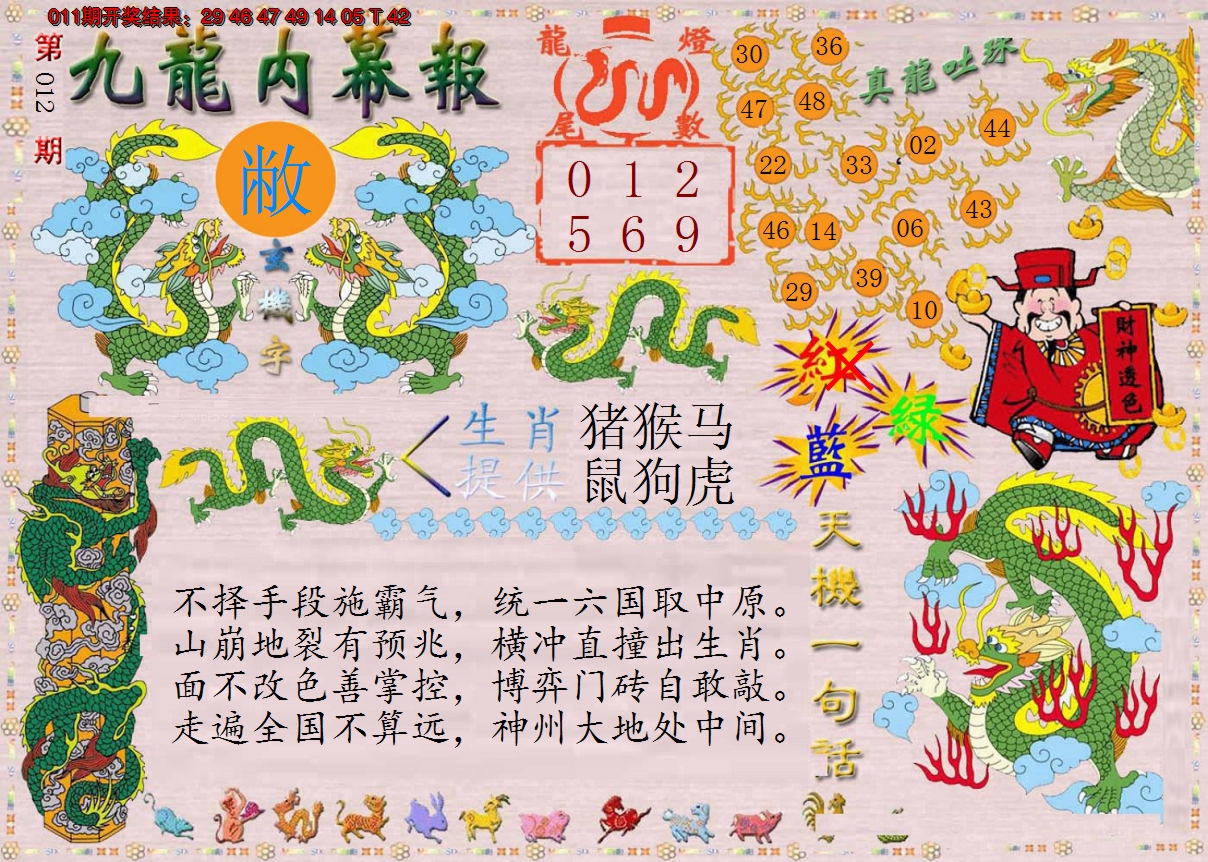 011期开奖结果：29 46 47 49 14 05 T 42
第012期
九龍内幕報
敝
玄機字
龍燈
尾數
0 1 2
5 6 9
真龍吐珠
30 36
47 48
22 33 02 44
46 14 06 43
29 39 10
紅
綠
藍
財神透色
生肖
提供
猪猴马
鼠狗虎
天機一句话
不择手段施霸气，统一六国取中原。
山崩地裂有预兆，横冲直撞出生肖。
面不改色善掌控，博弈门砖自敢敲。
走遍全国不算远，神州大地处中间。